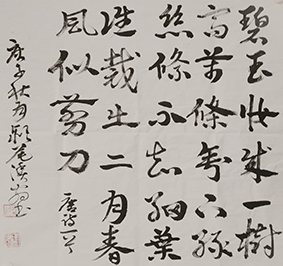 碧玉妆成一树
高万条垂下绿
丝绦不知细叶
谁裁出二月春
风似剪刀
唐诗一首
庚子秋月